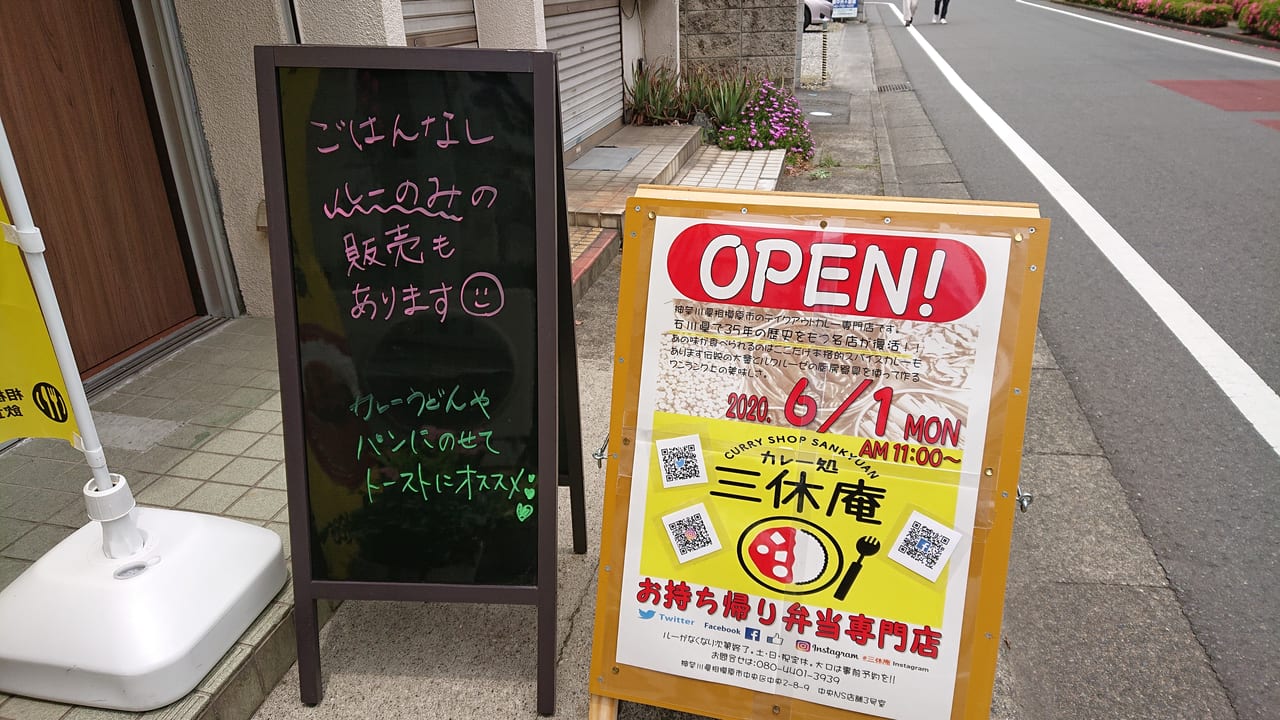 ごはんなし
ルーのみの
販売も
あります
カレーうどんや
パンにのせて
トーストにオススメ
OPEN!
神奈川県相模原市のテイクアウトカレー専門店です。
石川県で35年の歴史をもつ名店が復活!!
あの味が食べられるのはここだけ本格的スパイスカレーも
あります伝説の大釜とルクルーゼの厨房器具を使って作る
ワンランク上の美味しさ。
2020. 6/1 MON
AM 11:00〜
CURRY SHOP SANKYUAN
カレー処
三休庵
お持ち帰り弁当専門店
Twitter Facebook Instagram #三休庵 Instagram
ルーがなくない次第終了。土・日・祝定休。大口は事前予約を!!
お問合せは:080-4401-3939
神奈川県相模原市中央区中央2-8-9 中央NS店舗3号室
相模
飲